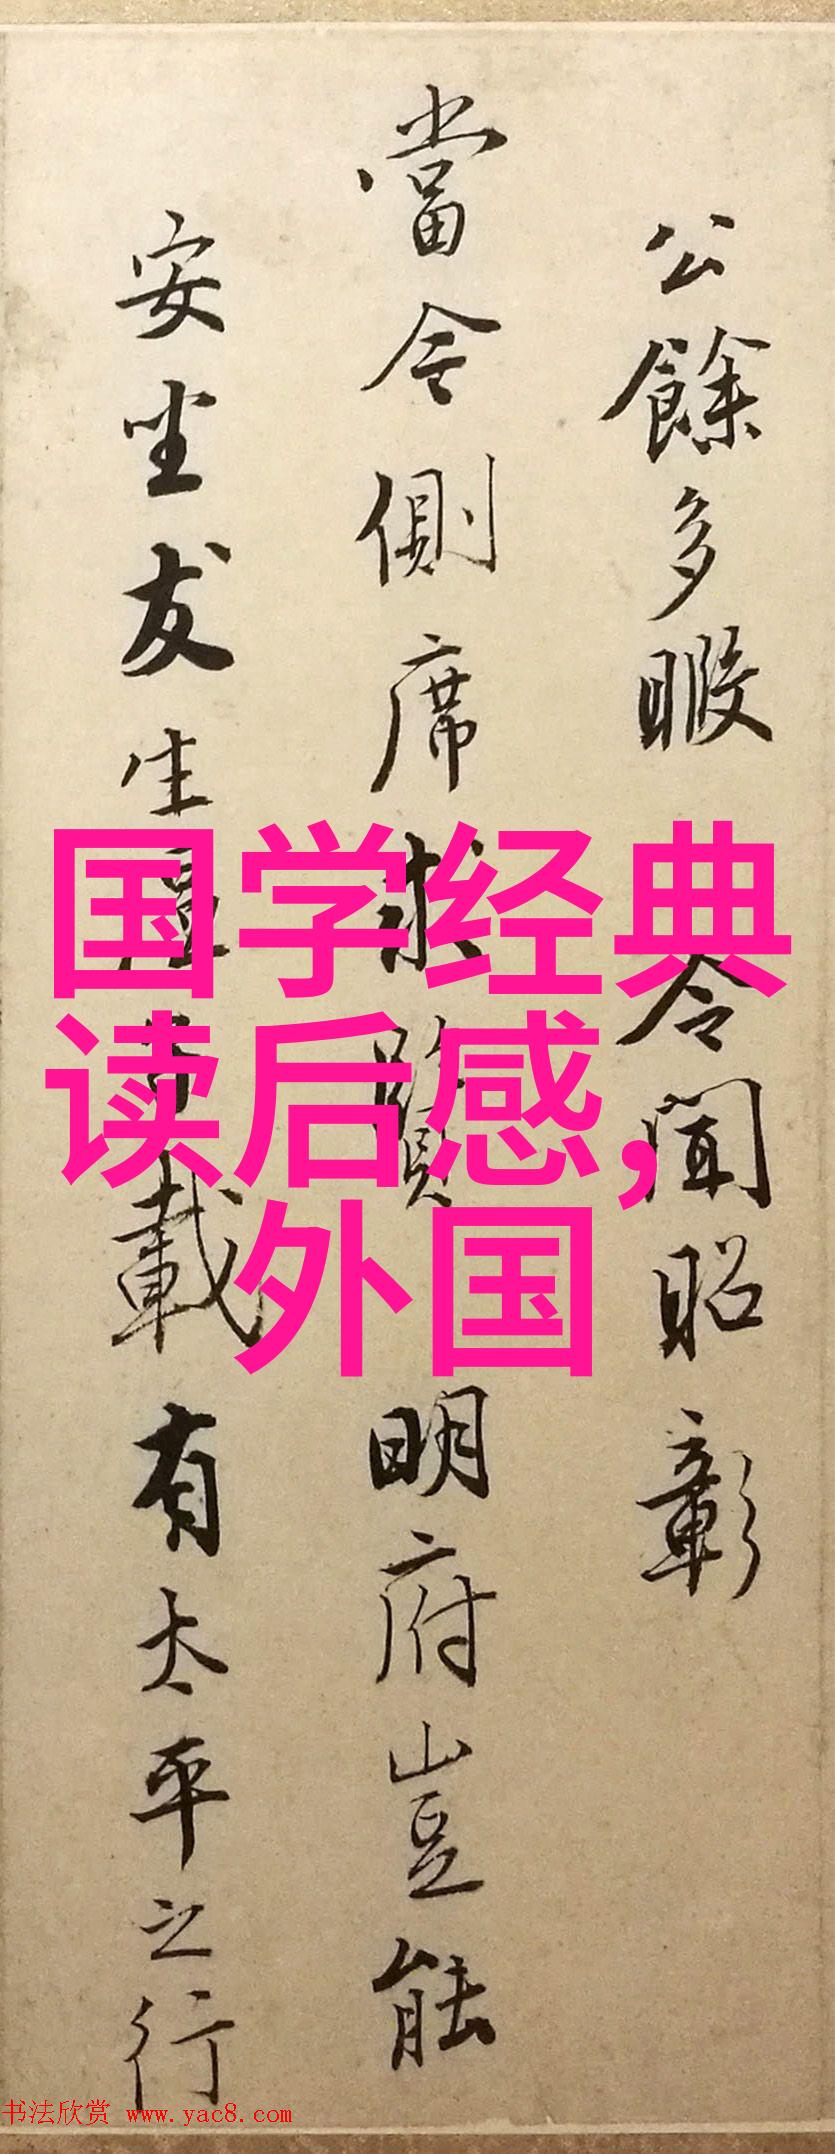 公餘多暇令聞昭彰
當今側席求賢明府豈能
安坐友生載有太平之行
国学经典
读后感,
外国
书法欣赏 www.yac8.com